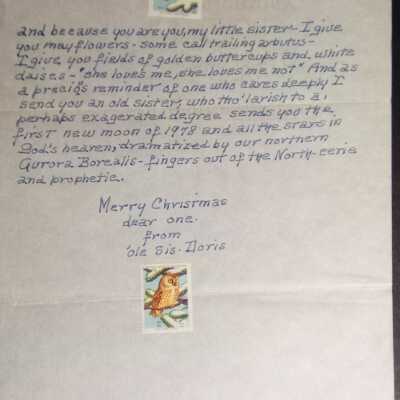 and because you are you, my little sister - I give
you mayflowers - some call trailing arbutus -
I give you fields of golden buttercups and white
daises - "she loves me, she loves me not" And as
a precious reminder of one who cares deeply I
send you an old sister, who tho' larish to a,
perhaps exagerated degree sends you the
first new moon of 1978 and all the stars in
God's heaven, dramatized by our northern
Aurora Borealis - fingers out of the North - eerie
and prophetic.
Merry Christmas
dear one.
from
'ole Sis - Doris